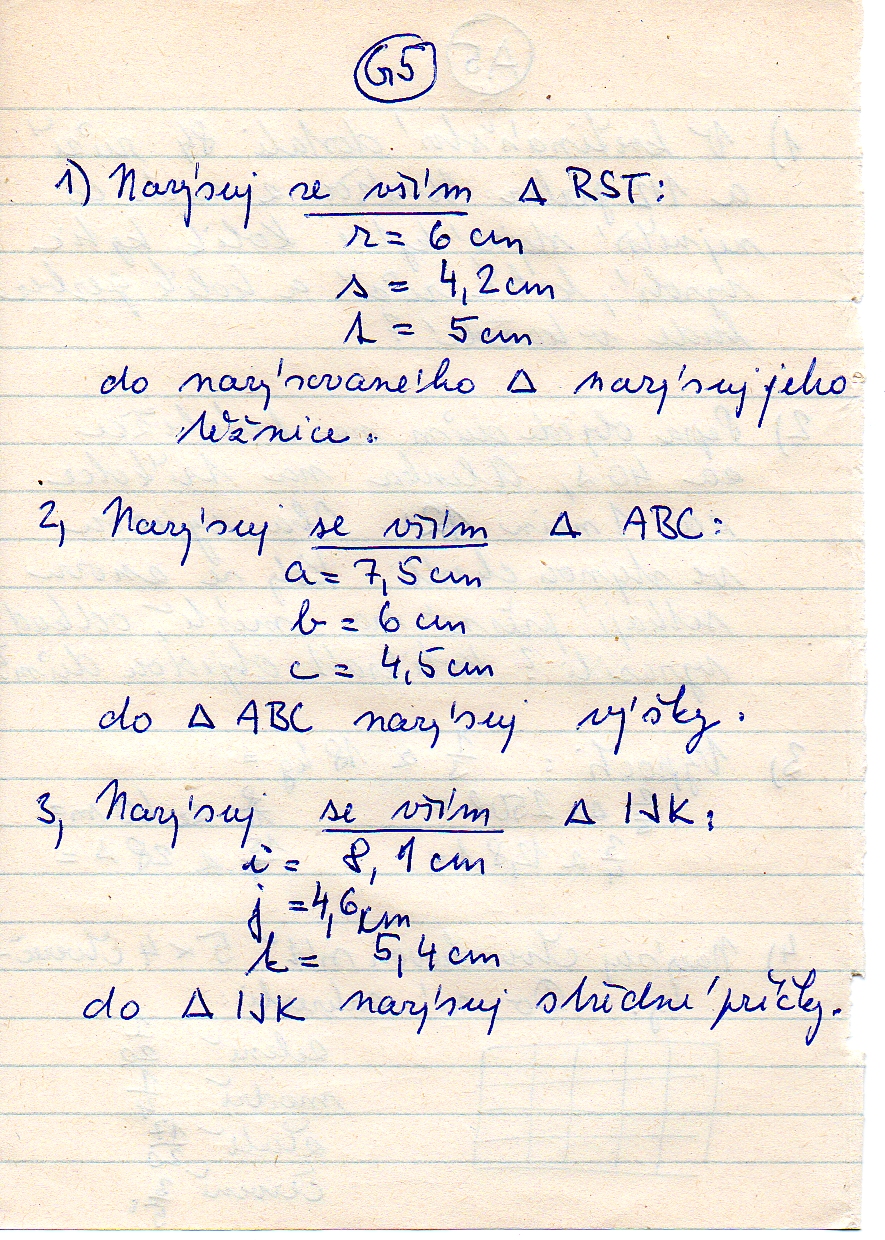 G5
1) Narýsuj se vším △ RST:
r = 6 cm
s = 4,2 cm
t = 5 cm
do narýsovaného △ narýsuj jeho
těžnice.
2, Narýsuj se vším △ ABC:
a = 7,5 cm
b = 6 cm
c = 4,5 cm
do △ ABC narýsuj výšky.
3, Narýsuj se vším △ IJK:
i = 8,1 cm
j = 4,6 cm
k = 5,4 cm
do △ IJK narýsuj střední příčky.